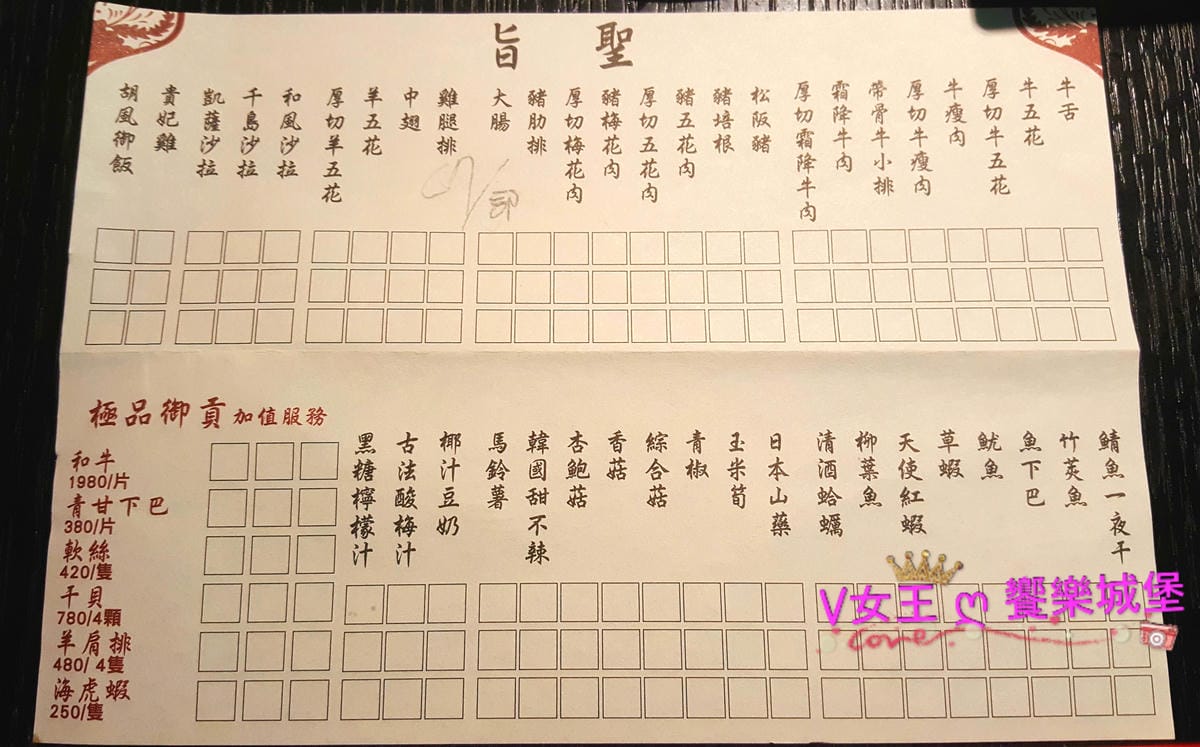 聖旨
牛舌
牛五花
厚切牛五花
牛瘦肉
厚切牛瘦肉
帶骨牛小排
霜降牛肉
厚切霜降牛肉
松阪豬
豬培根
豬五花肉
厚切五花肉
豬梅花肉
厚切梅花肉
豬肋排
大腸
雞腿排
中翅
羊五花
厚切羊五花
和風沙拉
千島沙拉
凱薩沙拉
貴妃雞
胡風御飯
鯖魚一夜干
竹莢魚
魚下巴
魷魚
草蝦
天使紅蝦
柳葉魚
清酒蛤蠣
日本山藥
玉米筍
青椒
綜合菇
香菇
杏鮑菇
韓國甜不辣
馬鈴薯
椰汁豆奶
古法酸梅汁
黑糖檸檬汁
極品御貢加值服務
和牛
1980/片
青甘下巴
380/片
軟絲
420/隻
干貝
780/4顆
羊肩排
480/4隻
海虎蝦
250/隻
V女王 ღ 饗樂城堡
cover.